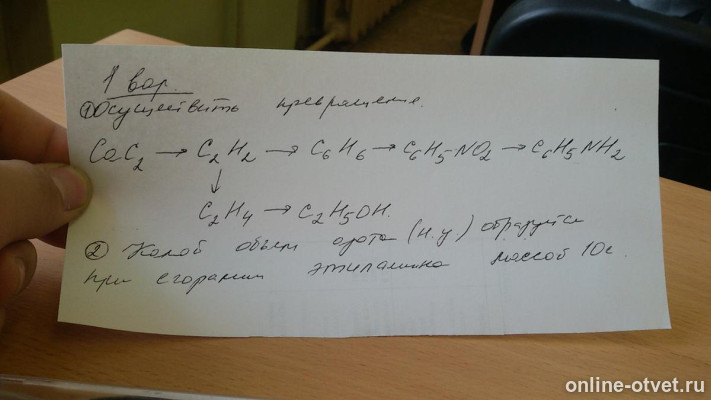 1 вар.
① Осуществить превращение.
CaC₂ → C₂H₂ → C₆H₆ → C₆H₅-NO₂ → C₆H₅NH₂
↓
C₂H₄ → C₂H₅OH.
② Какой объем азота (н.у) образуется
при сгорании этиламина массой 10г.
online-otvet.ru